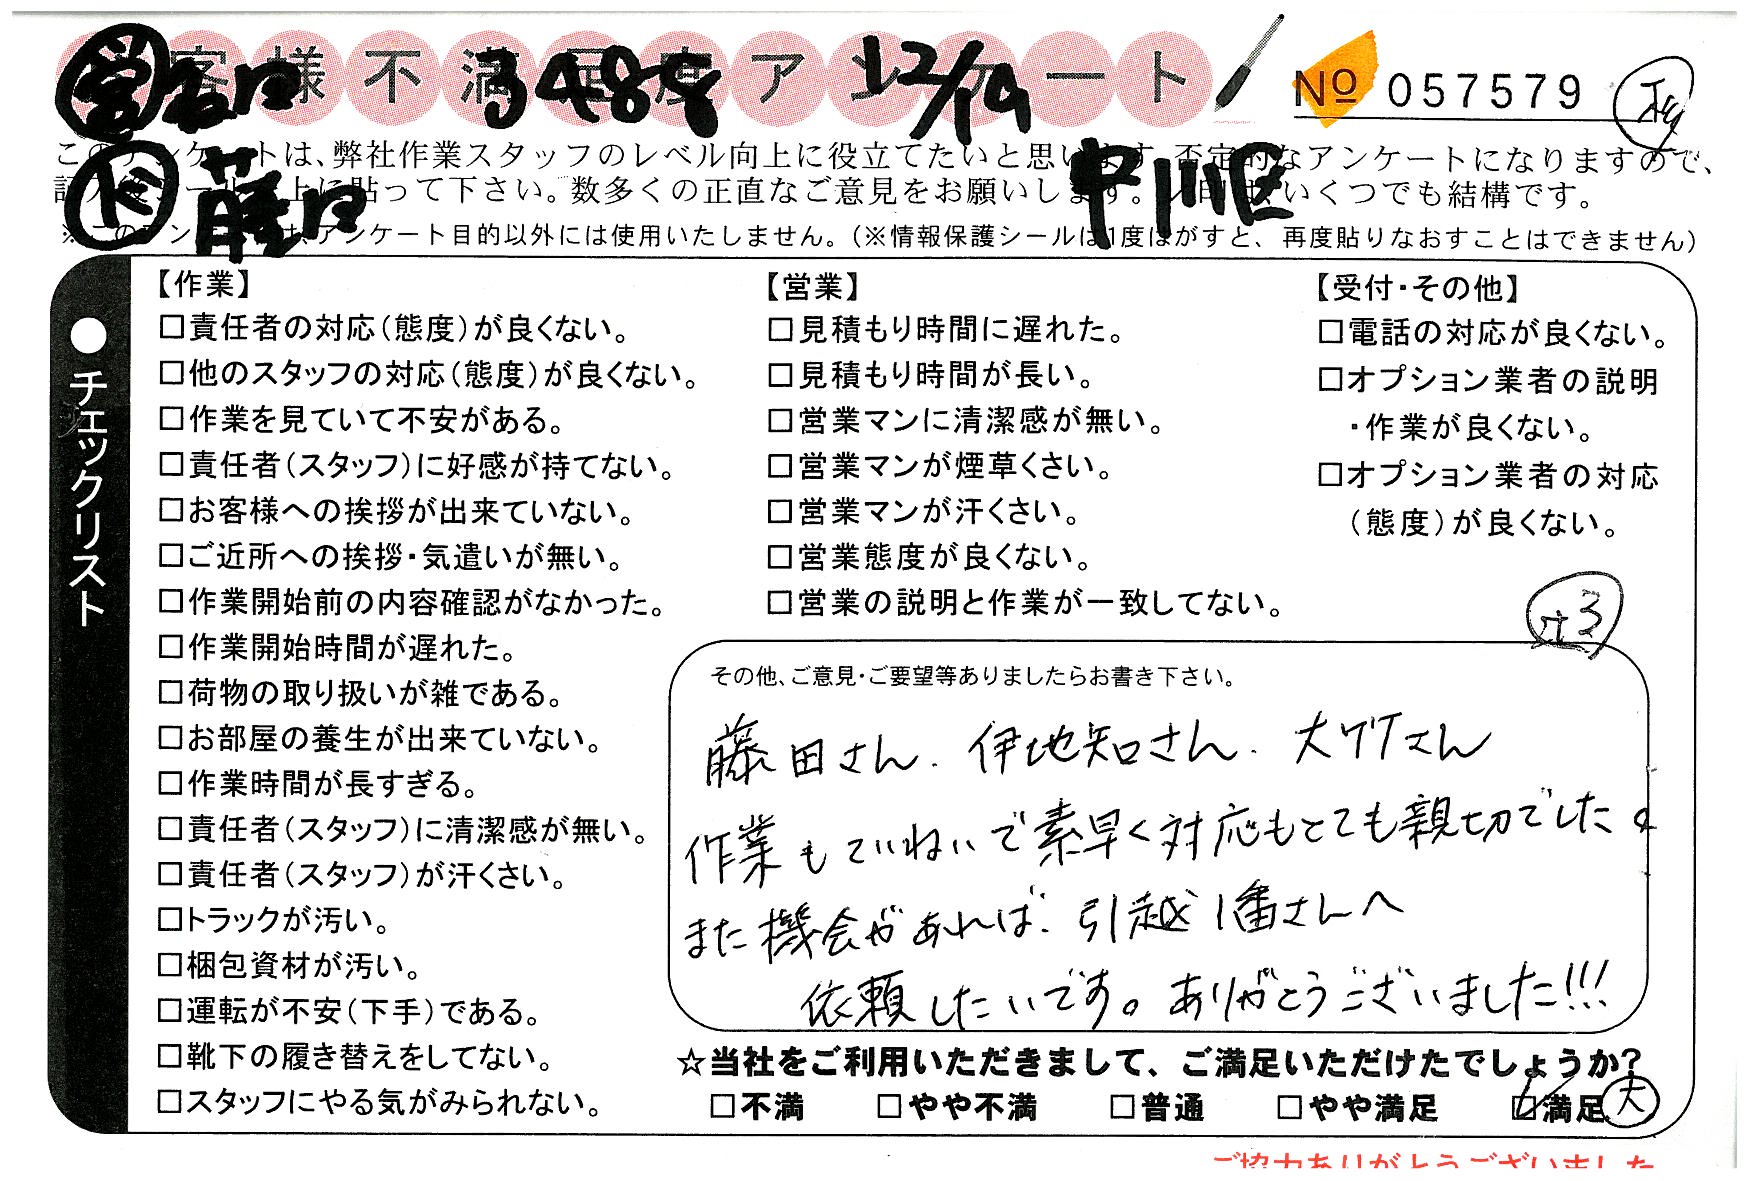 お客様不満足度アンケート
営 谷口 3488 12/19
№ 057579
このアンケートは、弊社作業スタッフのレベル向上に役立てたいと思います。否定的なアンケートになりますので、
上に貼って下さい。数多くの正直なご意見をお願いします。レ印は、いくつでも結構です。
藤口 中川区
※このアンケートは、アンケート目的以外には使用いたしません。(※情報保護シールは1度はがすと、再度貼りなおすことはできません)
●チェックリスト
【作業】
□責任者の対応(態度)が良くない。
□他のスタッフの対応(態度)が良くない。
□作業を見ていて不安がある。
□責任者(スタッフ)に好感が持てない。
□お客様への挨拶が出来ていない。
□ご近所への挨拶・気遣いが無い。
□作業開始前の内容確認がなかった。
□作業開始時間が遅れた。
□荷物の取り扱いが雑である。
□お部屋の養生が出来ていない。
□作業時間が長すぎる。
□責任者(スタッフ)に清潔感が無い。
□責任者(スタッフ)が汗くさい。
□トラックが汚い。
□梱包資材が汚い。
□運転が不安(下手)である。
□靴下の履き替えをしてない。
□スタッフにやる気がみられない。
【営業】
□見積もり時間に遅れた。
□見積もり時間が長い。
□営業マンに清潔感が無い。
□営業マンが煙草くさい。
□営業マンが汗くさい。
□営業態度が良くない。
□営業の説明と作業が一致してない。
【受付・その他】
□電話の対応が良くない。
□オプション業者の説明
・作業が良くない。
□オプション業者の対応
(態度)が良くない。
その他、ご意見・ご要望等ありましたらお書き下さい。
藤田さん、伊地知さん、大竹さん
作業もていねいで素早く対応もとても親切でした。
また機会があれば、引越1番さんへ
依頼したいです。ありがとうございました!!!
☆当社をご利用いただきまして、ご満足いただけたでしょうか?
□不満 □やや不満 □普通 □やや満足 ☑満足 大
ご協力ありがとうございました